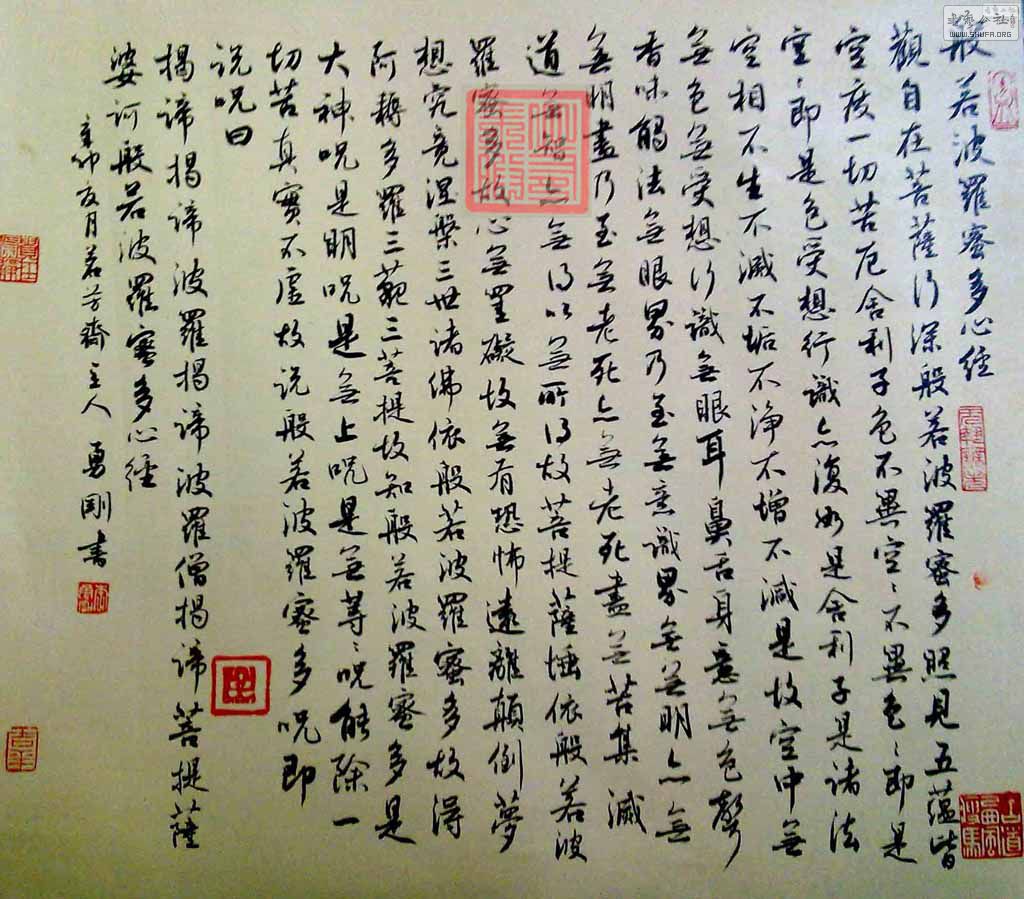 般若波羅蜜多心經
觀自在菩薩行深般若波羅蜜多照見五蘊皆
空度一切苦厄舍利子色不異空〻不異色〻即是
空〻即是色受想行識亦復如是舍利子是諸法
空相不生不滅不垢不淨不增不減是故空中無
無色無受想行識無眼耳鼻舌身意無色聲
香味觸法無眼界乃至無意識界無無明亦無
無明盡乃至無老死亦無老死盡無苦集滅
道無智亦無得以無所得故菩提薩埵依般若波
羅蜜多故心無罣礙故無有恐怖遠離顛倒夢
想究竟涅槃三世諸佛依般若波羅蜜多故得
阿耨多羅三藐三菩提故知般若波羅蜜多是
大神咒是明咒是無上咒是無等〻咒能除一
切苦真實不虛故說般若波羅蜜多咒即
說咒曰
揭諦揭諦波羅揭諦波羅僧揭諦菩提薩
婆訶般若波羅蜜多心經
辛卯月若芳齋主人 勇剛書
書藝公社
WWW.SHUFA.ORG